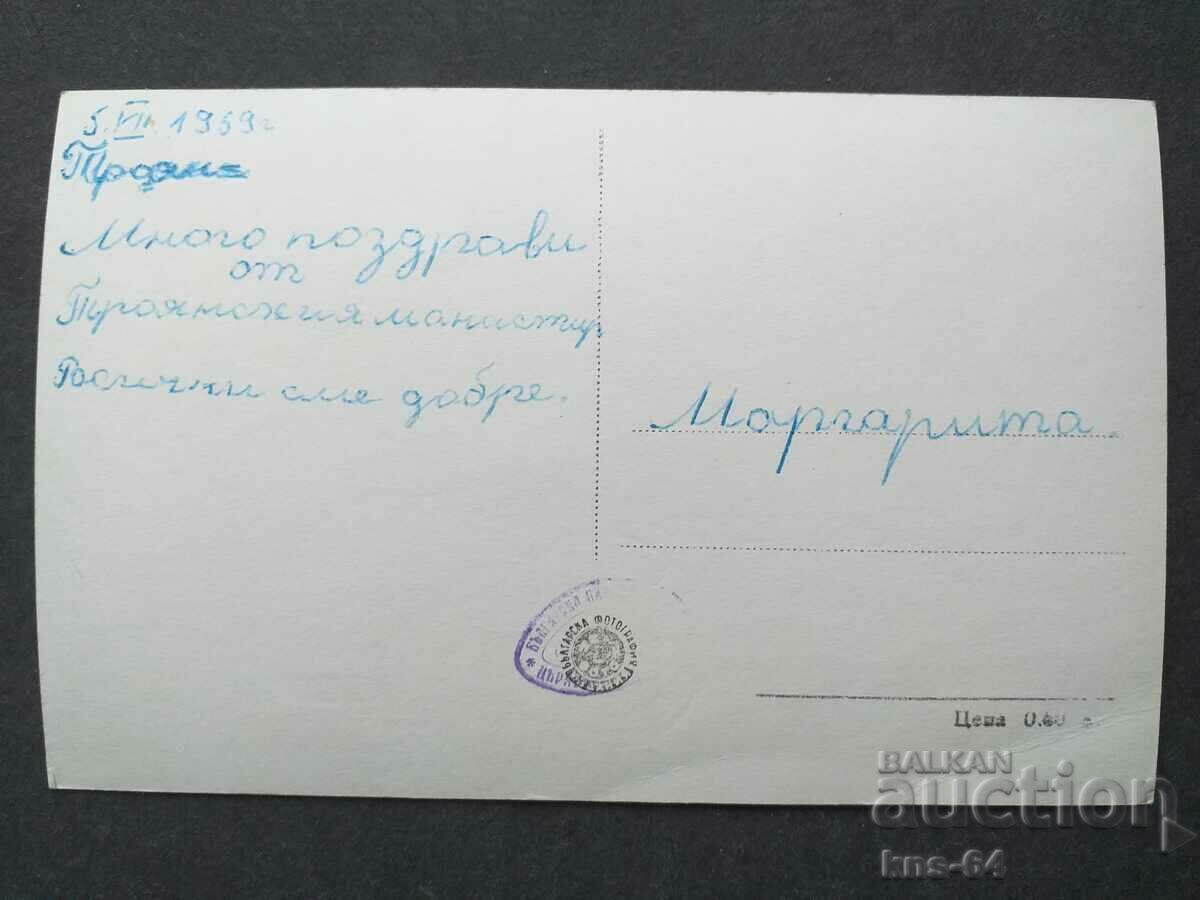 5.VII. 1959 г.
Троян
Много поздрави
от
Троянския манастир
Всички сме добре.
Маргарита.
* БЪЛГАРСКА
БЪЛГАРСКА ФОТОГРАФИЯ
Цена 0.40
BALKAN
auction
kns-64